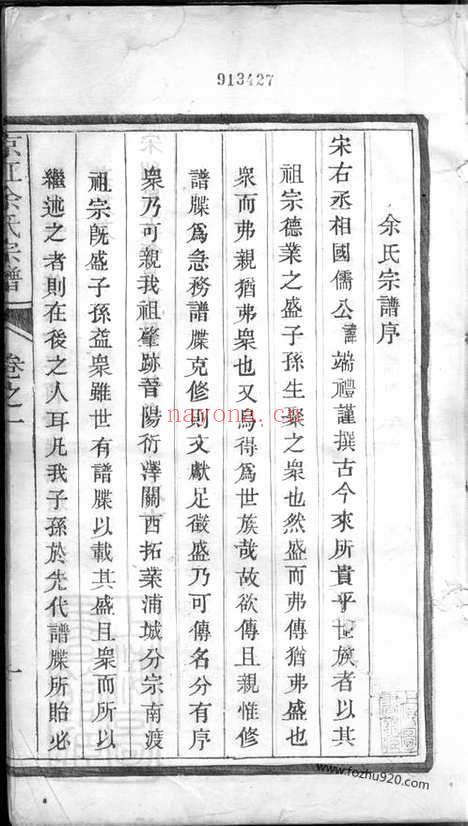 913427
余氏宗譜序
宋右丞相國儒公諱端禮謹撰古今來所貴乎世族者以其
祖宗德業之盛子孫生聚之衆也然盛而弗傳猶弗盛也
衆而弗親猶弗衆也又烏得為世族哉故欲傳且親惟修
譜牒為急務譜牒克修則文獻足徵盛乃可傳名分有序
衆乃可親我祖肇跡晉陽衍澤關西拓業浦城分宗南渡
祖宗既盛子孫益衆雖世有譜牒以載其盛且衆而所以
繼述之者則在後之人耳凡我子孫於先代譜牒所貽必
京江余氏宗譜
卷之一
一
nayong.cn
www.fozhu920.com